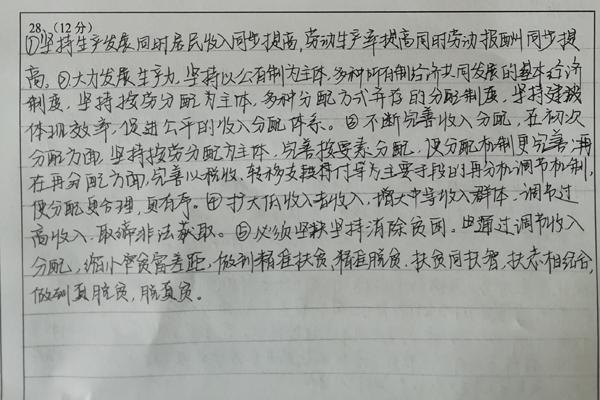 28. (12分)
①坚持生产发展同时居民收入同步提高,劳动生产率提高同时劳动报酬同步提
高。②大力发展生产力,坚持以公有制为主体,多种所有制经济共同发展的基本经济
制度,坚持按劳分配为主体,多种分配方式并存的分配制度,坚持建设
体现效率,促进公平的收入分配体系。③不断完善收入分配,在初次
分配方面,坚持按劳分配为主体,完善按要素分配,使分配机制更完善;再
在再分配方面,完善以税收,转移支付为主要手段的再分机调节机制,
使分配更合理,更有序。④扩大低收入者收入,增大中等收入群体,调节过
高收入,取缔非法获取。⑤必须坚持消除贫困。通过调节收入
分配,缩小贫富差距,做到精准扶贫,精准脱贫,扶贫同扶智,扶志相结合,
做到真脱贫,脱真贫。